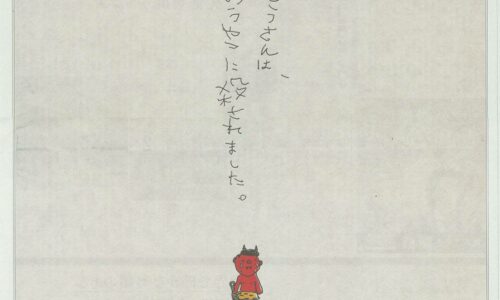 とうさんは、
ろうやつに殺されました。